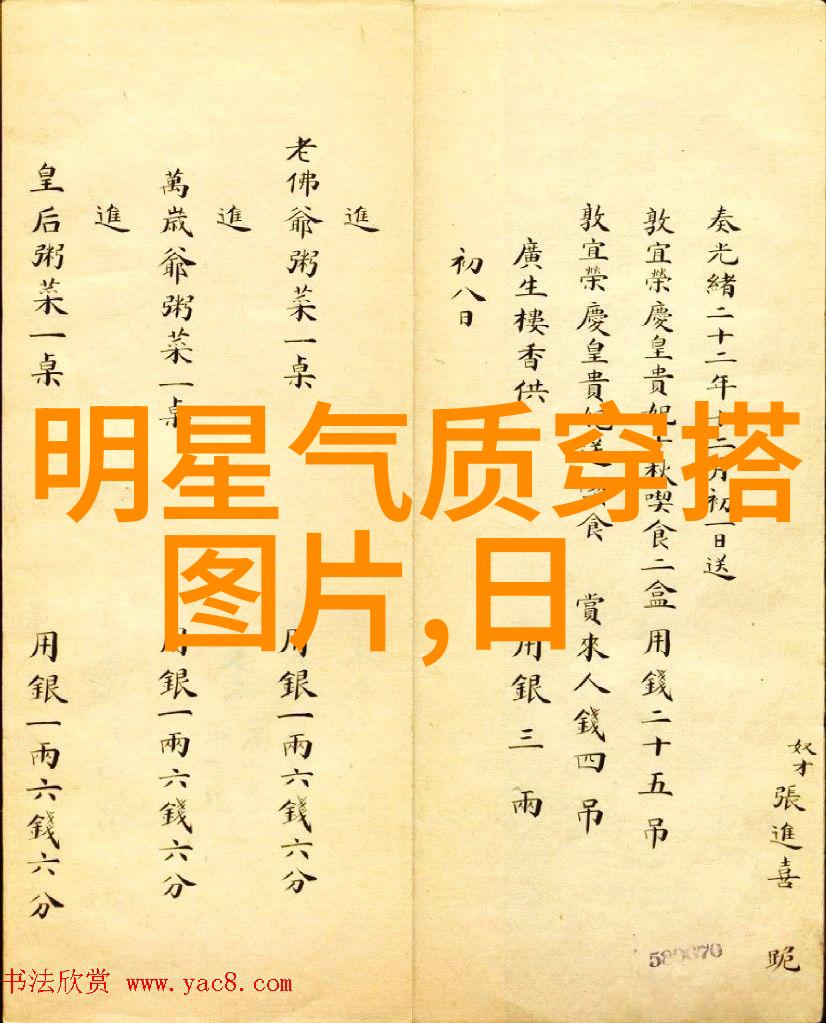 奴才張進喜 跪
奏光緒二十二年十二月初一日送
敦宜榮慶皇貴妃 秋喫食二盒用錢二十五吊
敦宜榮慶皇貴 食 賞來人錢四吊
廣生樓香供 用銀三兩
初八日
進
老佛爺粥菜一桌 用銀一兩六錢六分
進
萬歲爺粥菜一桌 用銀一兩六錢六分
進
皇后粥菜一桌 用銀一兩六錢六分
明星气质穿搭
图片,日
书法欣赏 www.yac8.com